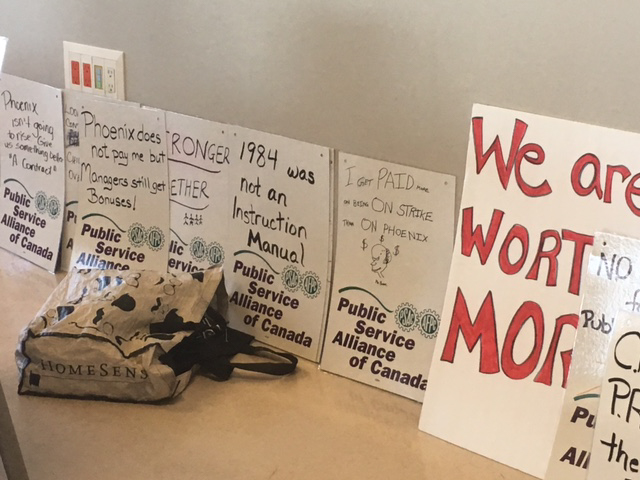 Phoenix
isn't going
to rise. Give
us something better
"A Contract"
Public
Service
Alliance
of Canada
Phoenix does
not pay me but
Managers still get
Bonuses!
Public
Service
Alliance
RONGER
ETHER
1984 was
not an
Instruction
Manual
Public
Service
Alliance
of Canada
I get PAID more
on being ON STRIKE
than ON PHOENIX
Public
Service
Alliance
of Canada
We are
WORT
MOR
NO
Publ
Pu
All
P.
the
HOMESENS